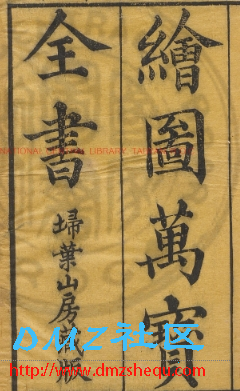 繪圖萬寶
全書
埽葉山房藏版
LIBRARY,
DMZ社区
http://www.dmzshequ.com